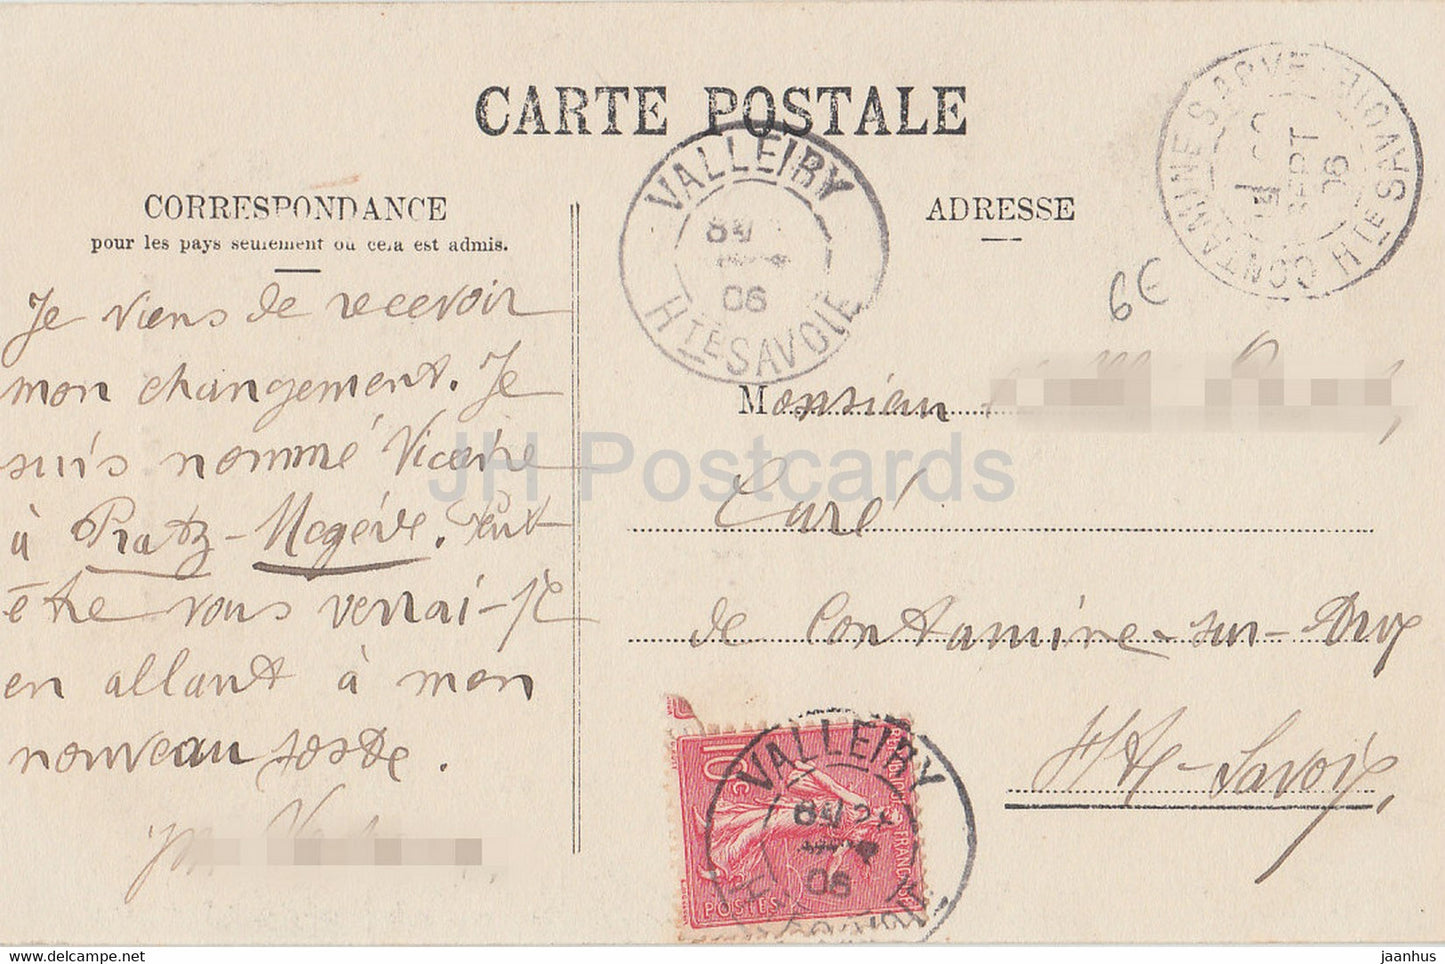 CARTE POSTALE
CORRESPONDANCE
pour les pays seulement où cela est admis.
Je viens de recevoir
mon changement. Je
suis nommé Vicaire
à Pratz-Megève. Peut-
être vous verrai-je
en allant à mon
nouveau poste.
ADRESSE
6€
Monsieur
Curé
de Contamine-sur-Arve
Hte-Savoie
VALLEIRY
8
06
HTE SAVOIE
CONTAMINE S ARVE
SEPT
06
HTE SAVOIE
10c
POSTES
VALLEIRY
8
06
JH Postcards
jaanhus — HipPostcard.com